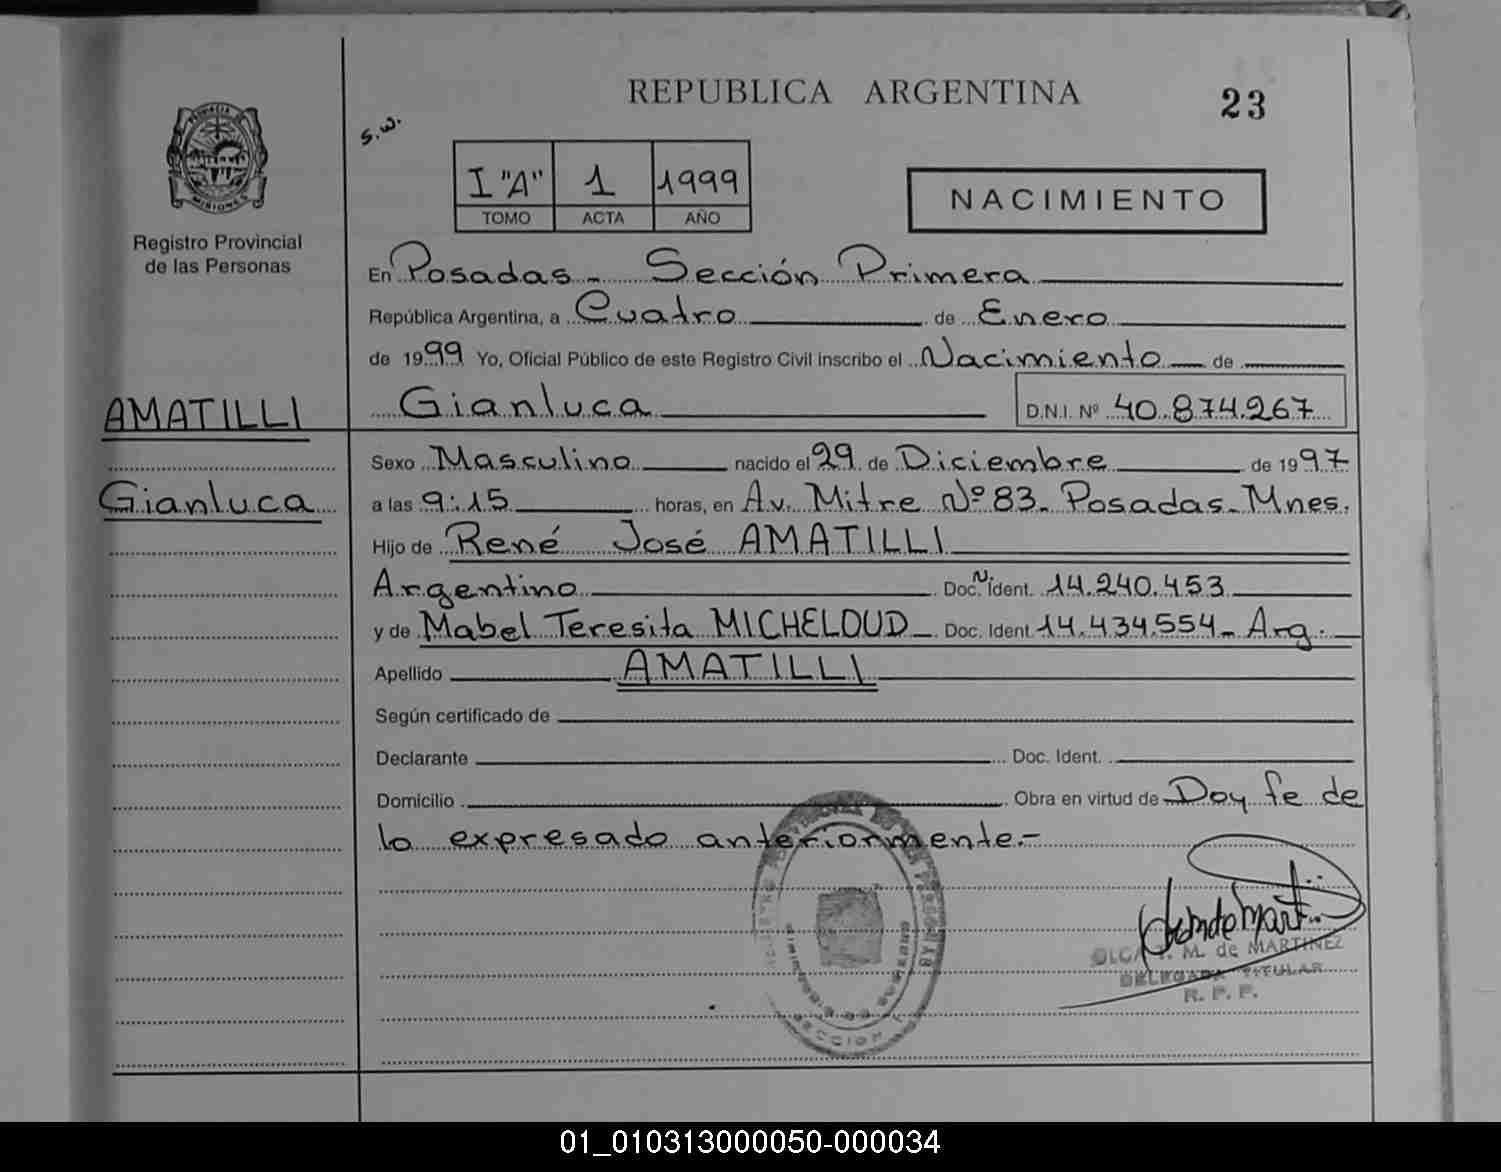 REPUBLICA ARGENTINA
23
s.w.
PROVINCIA DE
MISIONES
Registro Provincial
de las Personas
I "A" 1 1999
TOMO ACTA AÑO
NACIMIENTO
En Posadas - Sección Primera
República Argentina, a Cuatro de Enero
de 1999 Yo, Oficial Público de este Registro Civil inscribo el Nacimiento de
Gianluca D.N.I. Nº 40.874.267
AMATILLI
Sexo Masculino nacido el 29 de Diciembre de 1997
Gianluca
a las 9:15 horas, en Av. Mitre Nº 83- Posadas- Mnes.
Hijo de René José AMATILLI
Argentino Doc. N. Ident. 14.240.453
y de Mabel Teresita MICHELOUD Doc. Ident. 14.434.554- Arg.
Apellido AMATILLI
Según certificado de
Declarante Doc. Ident.
Domicilio Obra en virtud de Doy fe de
lo expresado anteriormente.-
M. de MARTINEZ
DELEGADA TITULAR
R. P. P.
SECCION
01_010313000050-000034